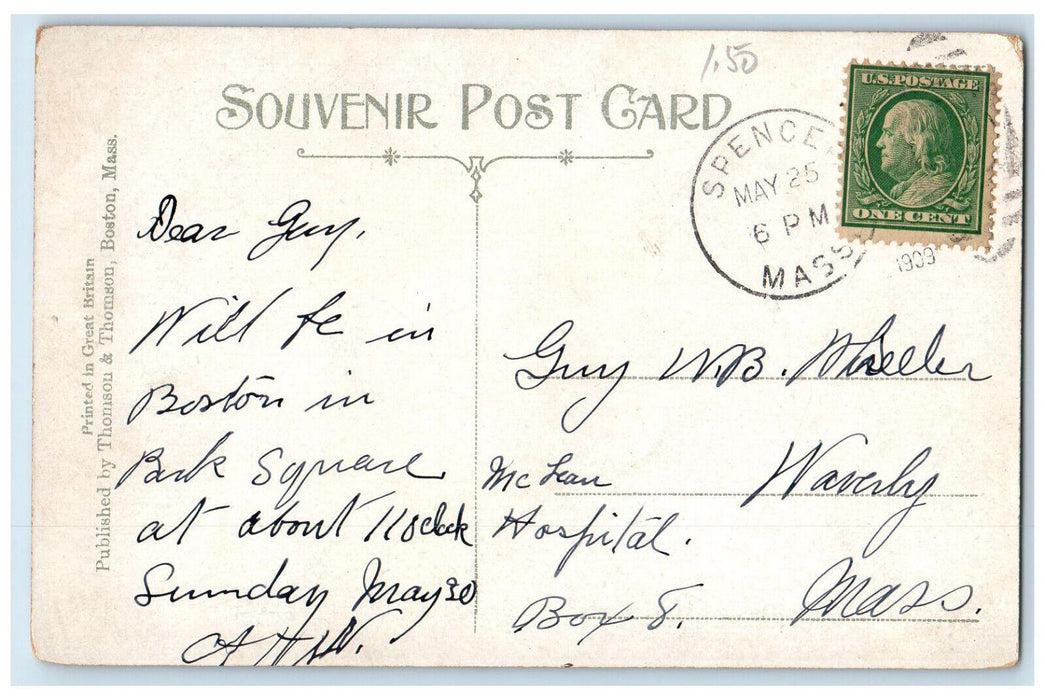 1.50
SOUVENIR POST CARD
U.S. POSTAGE
ONE CENT
SPENCER
MAY 25
6 PM
MASS
1909
Printed in Great Britain
Published by Thomson & Thomson, Boston, Mass.
Dear Guy,
Will be in
Boston in
Park Square
at about 11 oclock
Sunday May 30
Guy W.B. Wheeler
McLean Waverly
Hospital.
Box 8. Mass.